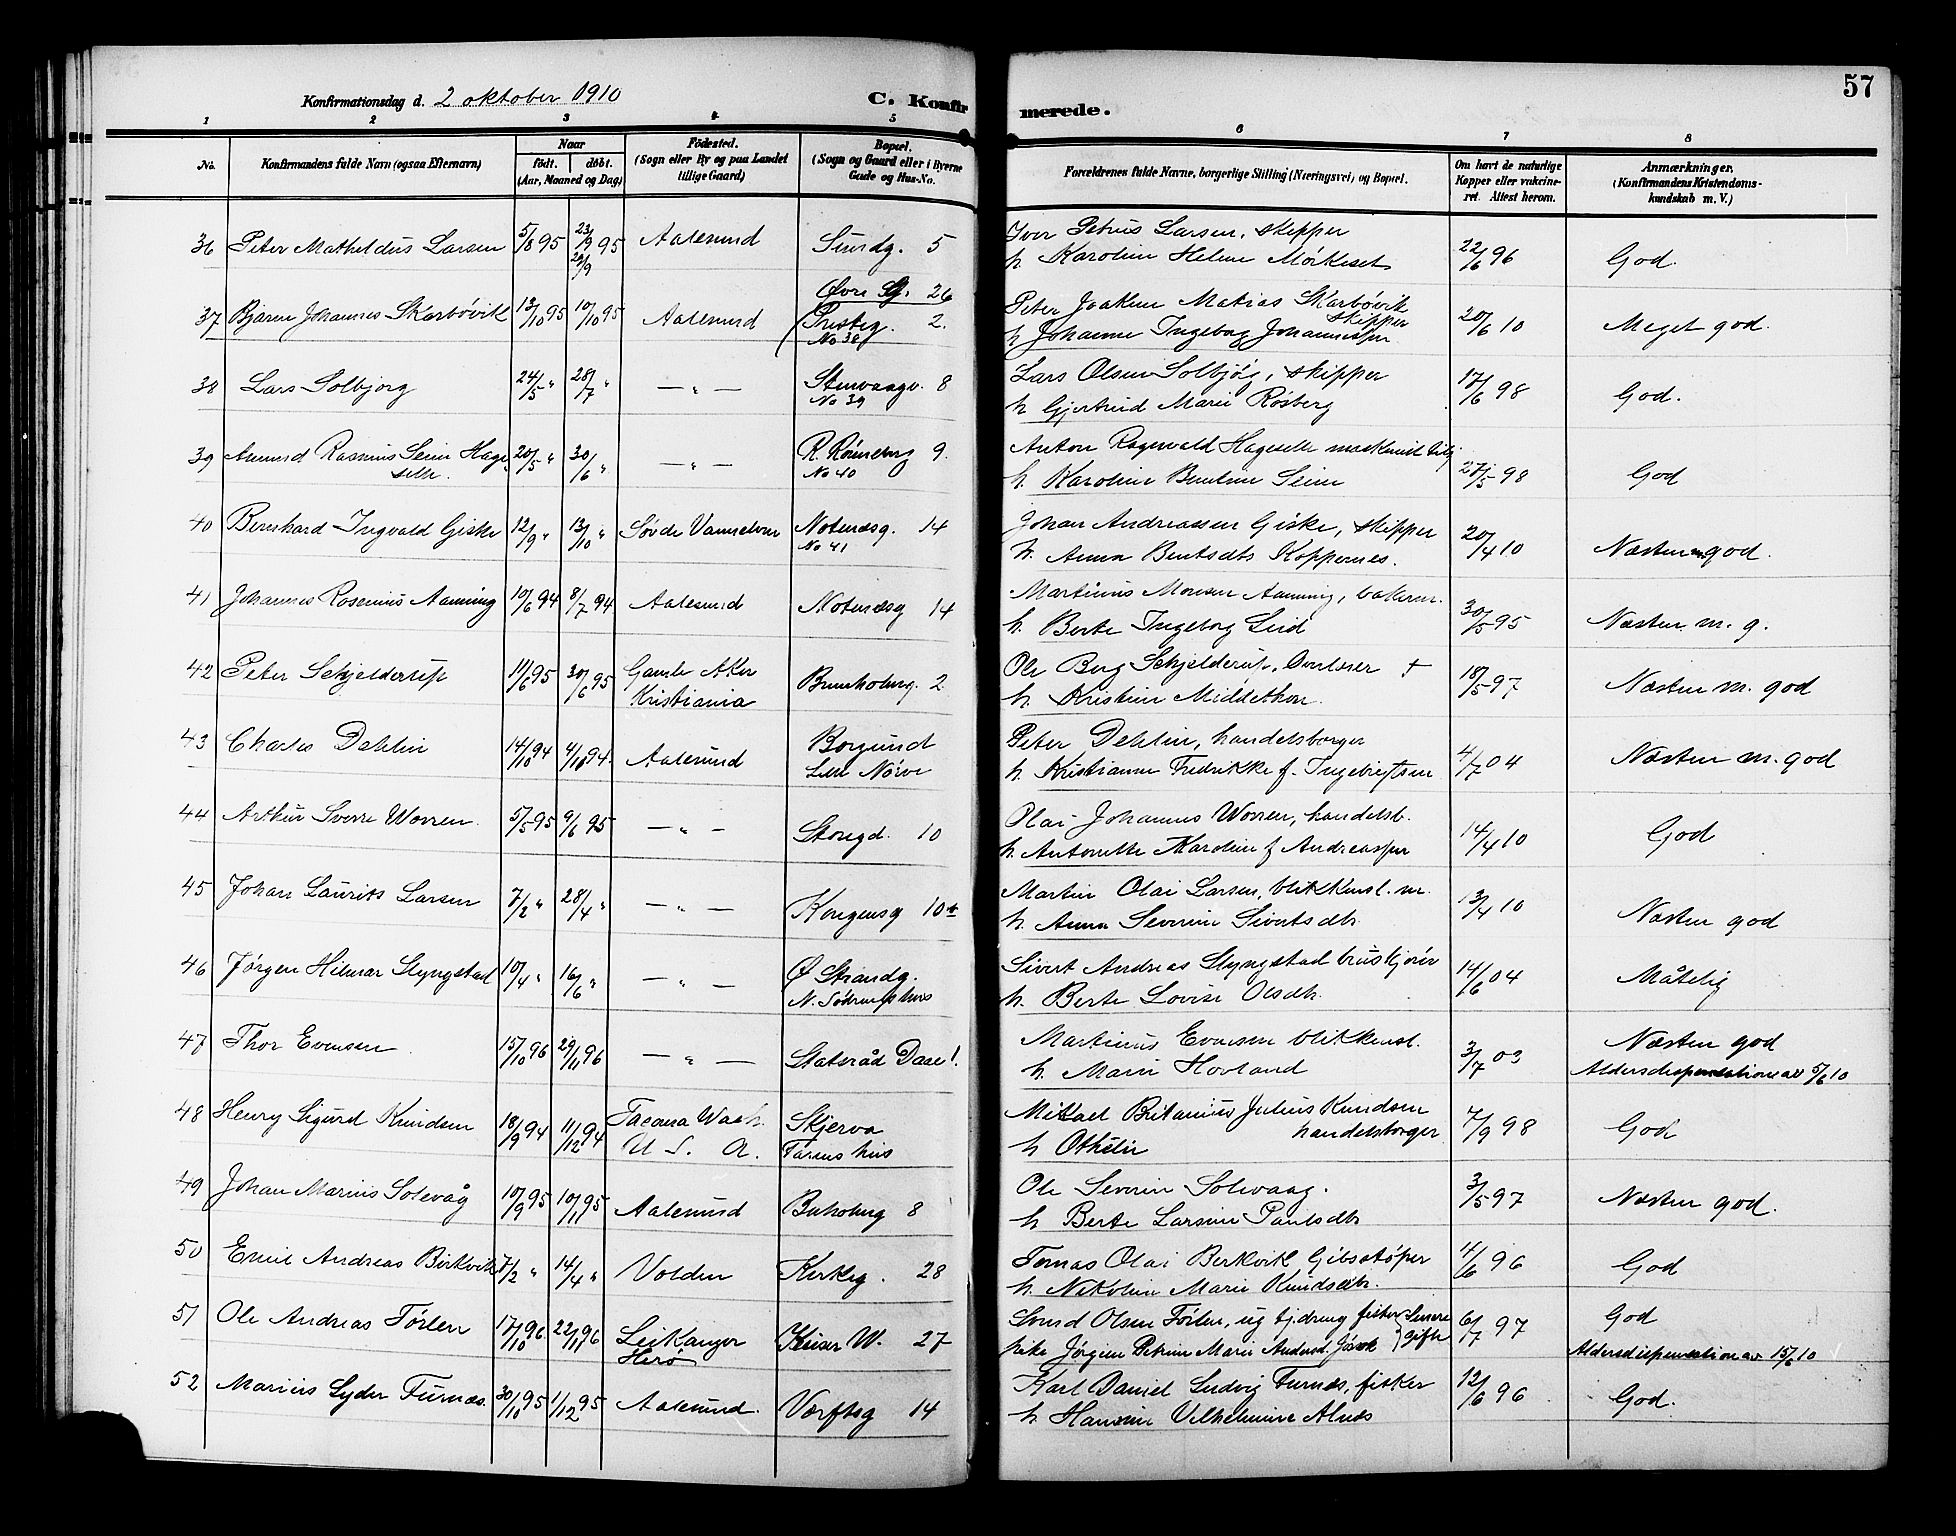 57
Konfirmationsdag d. 2 oktober 1910
C. Konfirmerede.
1 2 3 4 5 6 7 8
No. Konfirmandens fulde Navn (ogsaa Efternavn) Naar født. døbt. (Aar, Maaned og Dag) Fødested. (Sogn eller By og paa Landet tillige Gaard) Bopæl. (Sogn og Gaard eller i Byerne Gade og Hus-No. Forældrenes fulde Navne, borgerlige Stilling (Næringsvei) og Bopæl. Om havt de naturlige Kopper eller vakcineret. Attest herom. Anmærkninger. (Konfirmandens Kristendomskundskab m. V.)
36 Peter Matheldus Larsen 5/8 95 23/9 95 29/9 Aalesund Sundg. 5 Iver Petrus Larsen, skipper 22/6 96 God.
h Karoline Helene Mørkeset
37 Bjarne Johannes Skarbøvik 13/10 95 10/10 95 Aalesund Øvre Sg. 26 Peter Joakim Matias Skarbøvik skipper 20/6 10 Meget god.
(Presteg. 2. No 38 h Johanne Ingeborg Johannesdtr
38 Lars Solbjørg 24/5 " 28/7 " — " — 8 No 39 Lars Olsen Solbjørg, skipper 17/6 98 God.
h Gjertrud Marie Rosberg
39 Amund Rasmus Seim Hageselle. 20/5 " 30/6 " — " — R. Rønneberg 9. No 40 Anton Ragnvald Hageselle 27/5 98 God
h. Karoline Bentine Seim
40 Bernhard Ingvald Giske 12/9 " 13/10 " Søvde Vannelven Notenæsg. 14 No 41 Johan Andreassen Giske, skipper 20/4 10 Næsten m. god.
h. Anna Bentsdtr Koppernes.
41 Johannes Rosenius Aanning 10/6 94 8/7 94 Aalesund Notenæsg 14 Martinus Monsen Aanning, bakerm. 30/5 95 Næsten m. g.
h. Berte Ingeborg Leid
42 Peter Schjelderup 11/6 95 30/6 95 Gamle Aker Kristiania Bunkholmg. 2 Ole Berg Schjelderup, † 18/5 97 Næsten m. god
h. Kristine Middelthon.
43 Charles Dehlin 14/10 94 4/10 94. Aalesund Borgund Lille Nørve Peter Dehlin, handelsborger 4/7 04 Næsten m. god
h. Kristianne Fredrikke f. Ingebrigtsen
44 Arthur Sverre Worren 5/5 95 9/6 95 — " — Storgd. 10 Olai Johannes Worren, handelsb. 14/4 10 God
h. Antonette Karoline f Andreassen
45 Johan Laurits Larsen 7/2 " 28/4 " — " — Kongensg 10 Martin Olai Larsen, blikkensl. m. 13/4 10 Næsten god
h. Anna Severine Sivertsdtr.
46 Jørgen Hilmar Slyngstad 10/4 " 16/6 " — " — Ø Strandg. N. Södrings hus Sivert Andreas Slyngstad 14/6 04 Måtelig
h. Berte Lovise Olsdtr.
47 Thor Evensen 15/10 96 29/11 96 — " — Statsråd Daae! Martinus Evensen blikkensl. 3/7 03 Næsten god
h. Marie Hovland Aldersdispensation av 5/6 10
48 Henry Sigurd Knudsen 18/9 94 11/12 94 Tacoma Wash. U. S. A. Skjerva Farens hus Mikael Britanius Julius Knudsen handelsborger 7/9 98 God
h Othelie
49 Johan Marius Solevåg 10/9 95 10/11 95 Aalesund Bukholmg 8 Ole Severin Solevaag. 3/5 97 Næsten god.
h Berte Larsine Paulsdtr
50 Emil Andreas Birkvik 7/2 " 14/4 " Volden Kirkeg. 28 Tomas Olai Berkvik Gibsstøper 4/6 96 God
h. Nikoline Marie Knudsdtr.
51 Ole Andreas Førlen 17/10 96 22/11 96 Leikanger Herø Keiser W. 27 Olsen Førlen, fisker senere gifte 6/7 97 God
pike Jørgine Petrine Marie Aldersdispensation av 15/6 10
52 Marius Lyder Furnæs. 30/10 95 1/12 95 Aalesund. Værftsg 14 Karl Daniel Ludvig Furnæs, fisker 12/6 96 God.
h Hansine Vilhelmine Alnæs